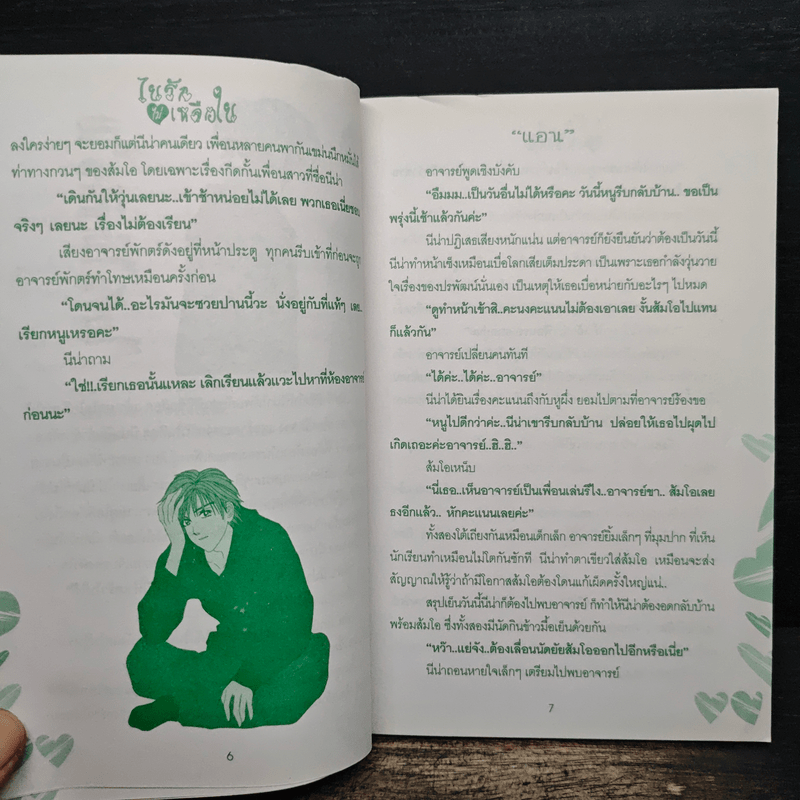 ไนรัก
ที่เหลือใน
ลงใครง่ายๆ จะยอมก็แต่นีน่าคนเดียว เพื่อนหลายคนพากันเขม่นนึกหมั่นไส้
ท่าทางกวนๆ ของส้มโอ โดยเฉพาะเรื่องกีดกั้นเพื่อนสาวที่ชื่อนีน่า
“เดินกันให้วุ่นเลยนะ..เข้าช้าหน่อยไม่ได้เลย พวกเธอเนี่ยชอบ
จริงๆ เลยนะ เรื่องไม่ต้องเรียน”
เสียงอาจารย์พักตร์ดังอยู่ที่หน้าประตู ทุกคนรีบเข้าที่ก่อนจะถูก
อาจารย์พักตร์ทำโทษเหมือนครั้งก่อน
“โดนจนได้..อะไรมันจะซวยปานนี้วะ นั่งอยู่กับที่แท้ๆ เลย..
เรียกหนูเหรอคะ”
นีน่าถาม
“ใช่!!..เรียกเธอนั้นแหละ เลิกเรียนแล้วแวะไปหาที่ห้องอาจารย์
ก่อนนะ”
6
“แอน”
อาจารย์พูดเชิงบังคับ
“อืมมม..เป็นวันอื่นไม่ได้หรือคะ วันนี้หนูรีบกลับบ้าน.. ขอเป็น
พรุ่งนี้เช้าแล้วกันค่ะ”
นีน่าปฏิเสธเสียงหนักแน่น แต่อาจารย์ก็ยังยืนยันว่าต้องเป็นวันนี้
นีน่าทำหน้าเซ็งเหมือนเบื่อโลกเสียเต็มประดา เป็นเพราะเธอกำลังวุ่นวาย
ใจเรื่องของปรพัฒน์นั่นเอง เป็นเหตุให้เธอเบื่อหน่ายกับอะไรๆ ไปหมด
“ดูทำหน้าเข้าสิ..คะนงคะแนนไม่ต้องเอาเลย งั้นส้มโอไปแทน
ก็แล้วกัน”
อาจารย์เปลี่ยนคนทันที
“ได้ค่ะ..ได้ค่ะ..อาจารย์”
นีน่าได้ยินเรื่องคะแนนถึงกับหูผึ่ง ยอมไปตามที่อาจารย์ร้องขอ
“หนูไปดีกว่าค่ะ..นีน่าเขารีบกลับบ้าน ปล่อยให้เธอไปผุดไป
เกิดเถอะค่ะอาจารย์..ฮิ..ฮิ..”
ส้มโอเหน็บ
“นี่เธอ..เห็นอาจารย์เป็นเพื่อนเล่นรึไง..อาจารย์ขา.. ส้มโอเลย
ธงอีกแล้ว.. หักคะแนนเลยค่ะ”
ทั้งสองโต้เถียงกันเหมือนเด็กเล็ก อาจารย์ยิ้มเล็กๆ ที่มุมปาก ที่เห็น
นักเรียนทำเหมือนไม่โตกันซักที นีน่าทำตาเขียวใส่ส้มโอ เหมือนจะส่ง
สัญญาณให้รู้ว่าถ้ามีโอกาสส้มโอต้องโดนแก้เผ็ดครั้งใหญ่แน่..
สรุปเย็นวันนี้นีน่าก็ต้องไปพบอาจารย์ ก็ทำให้นีน่าต้องอดกลับบ้าน
พร้อมส้มโอ ซึ่งทั้งสองมีนัดกินข้าวมื้อเย็นด้วยกัน
“หว๊า..แย่จัง..ต้องเลื่อนนัดยัยส้มโอออกไปอีกหรือเนี่ย”
นีน่าถอนหายใจเล็กๆ เตรียมไปพบอาจารย์
7